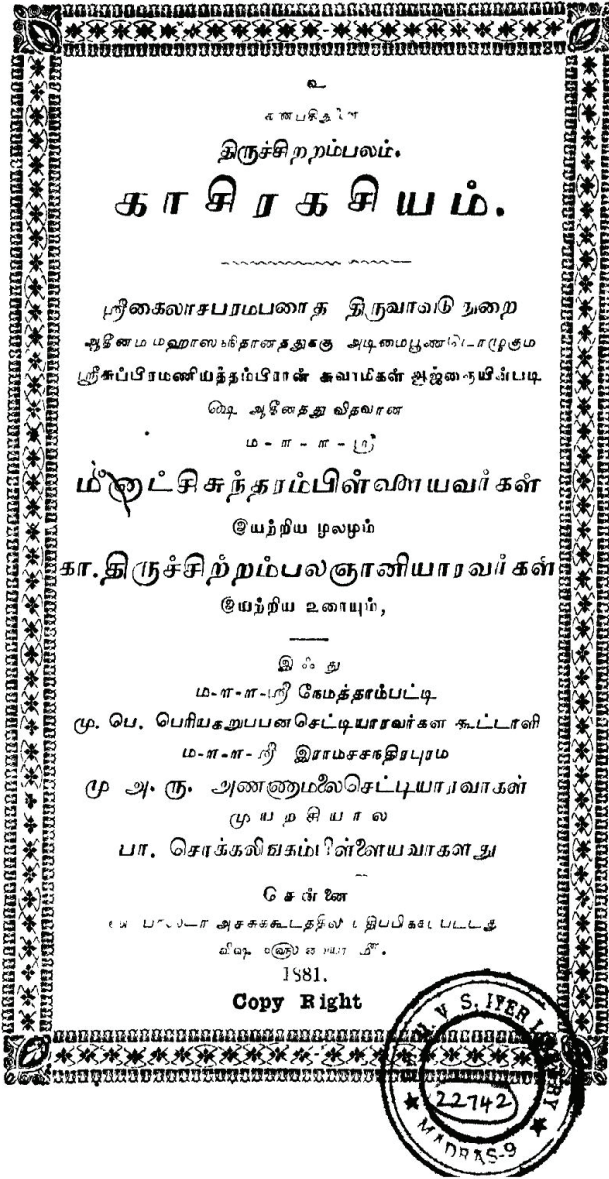 உ
கணபதிதுணை
திருச்சிற்றம்பலம்.
காசிரகசியம்.
ஸ்ரீகைலாசபரமபரைத திருவாவடுதுறை
ஆதீனம மஹாஸநநிதானததுககு அடிமைபூணடொழுகும
ஸ்ரீசுப்பிரமணியத்தம்பிரான் சுவாமிகள் ஆஜ்ஞையின்படி
ஆதீனதது விதவான
ம-ா-ா-ஸ்ரீ
மீனாட்சிசுந்தரம்பிள்ளையவர்கள்
இயற்றிய மூலமும்
கா.திருச்சிற்றம்பலஞானியாரவர்கள்
இயற்றிய உரையும்,
இஃது
ம-ா-ா-ஸ்ரீ நேமத்தாம்பட்டி
மு. பெ. பெரியகறுபபனசெட்டியாரவர்கள கூட்டாளி
ம-ா-ா-ஸ்ரீ இராமசசநதிரபுரம
மு அ. ரு. அணணுமலைசெட்டியாரவாகள்
முயறசியால
பா. சொக்கலிஙகம்பிள்ளையவாகளது
சென்னை
அச்சுக்கூடத்தில் பதிப்பிக்கப்பட்டது
1881.
Copy Right
H. V. S. IYER LIBRARY
22742
MADRAS-9